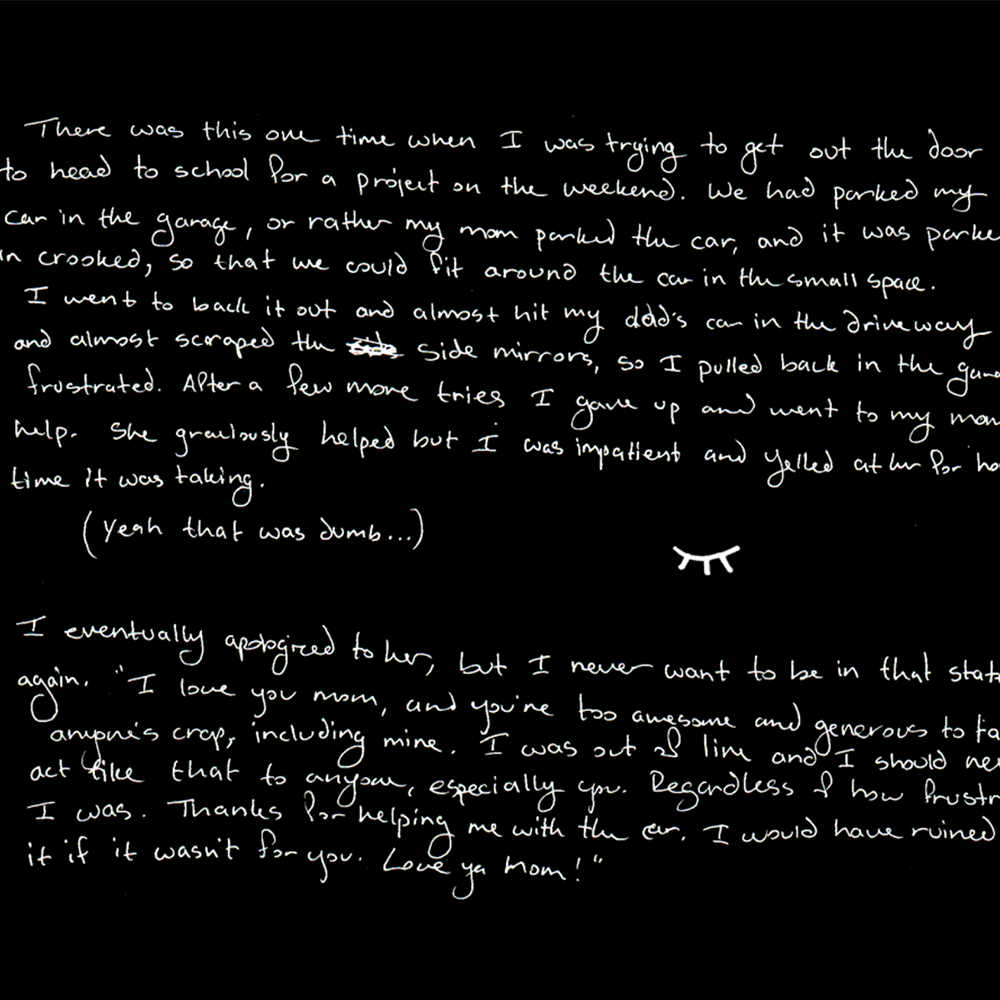 There was this one time when I was trying to get out the door
to head to school for a project on the weekend. We had parked my
car in the garage, or rather my mom parked the car, and it was parke
in crooked, so that we could fit around the car in the small space.
I went to back it out and almost hit my dad's car in the driveway
and almost scraped the side side mirrors, so I pulled back in the gara
frustrated. After a few more tries I gave up and went to my mom
help. She graciously helped but I was impatient and yelled at her for ho
time it was taking.
(Yeah that was dumb...)
I eventually apologized to her, but I never want to be in that stat
again. "I love you mom, and you're too awesome and generous to ta
anyone's crap, including mine. I was out of line and I should nev
act like that to anyone, especially you. Regardless of how frustr
I was. Thanks for helping me with the car. I would have ruined
it if it wasn't for you. Love ya Mom!"